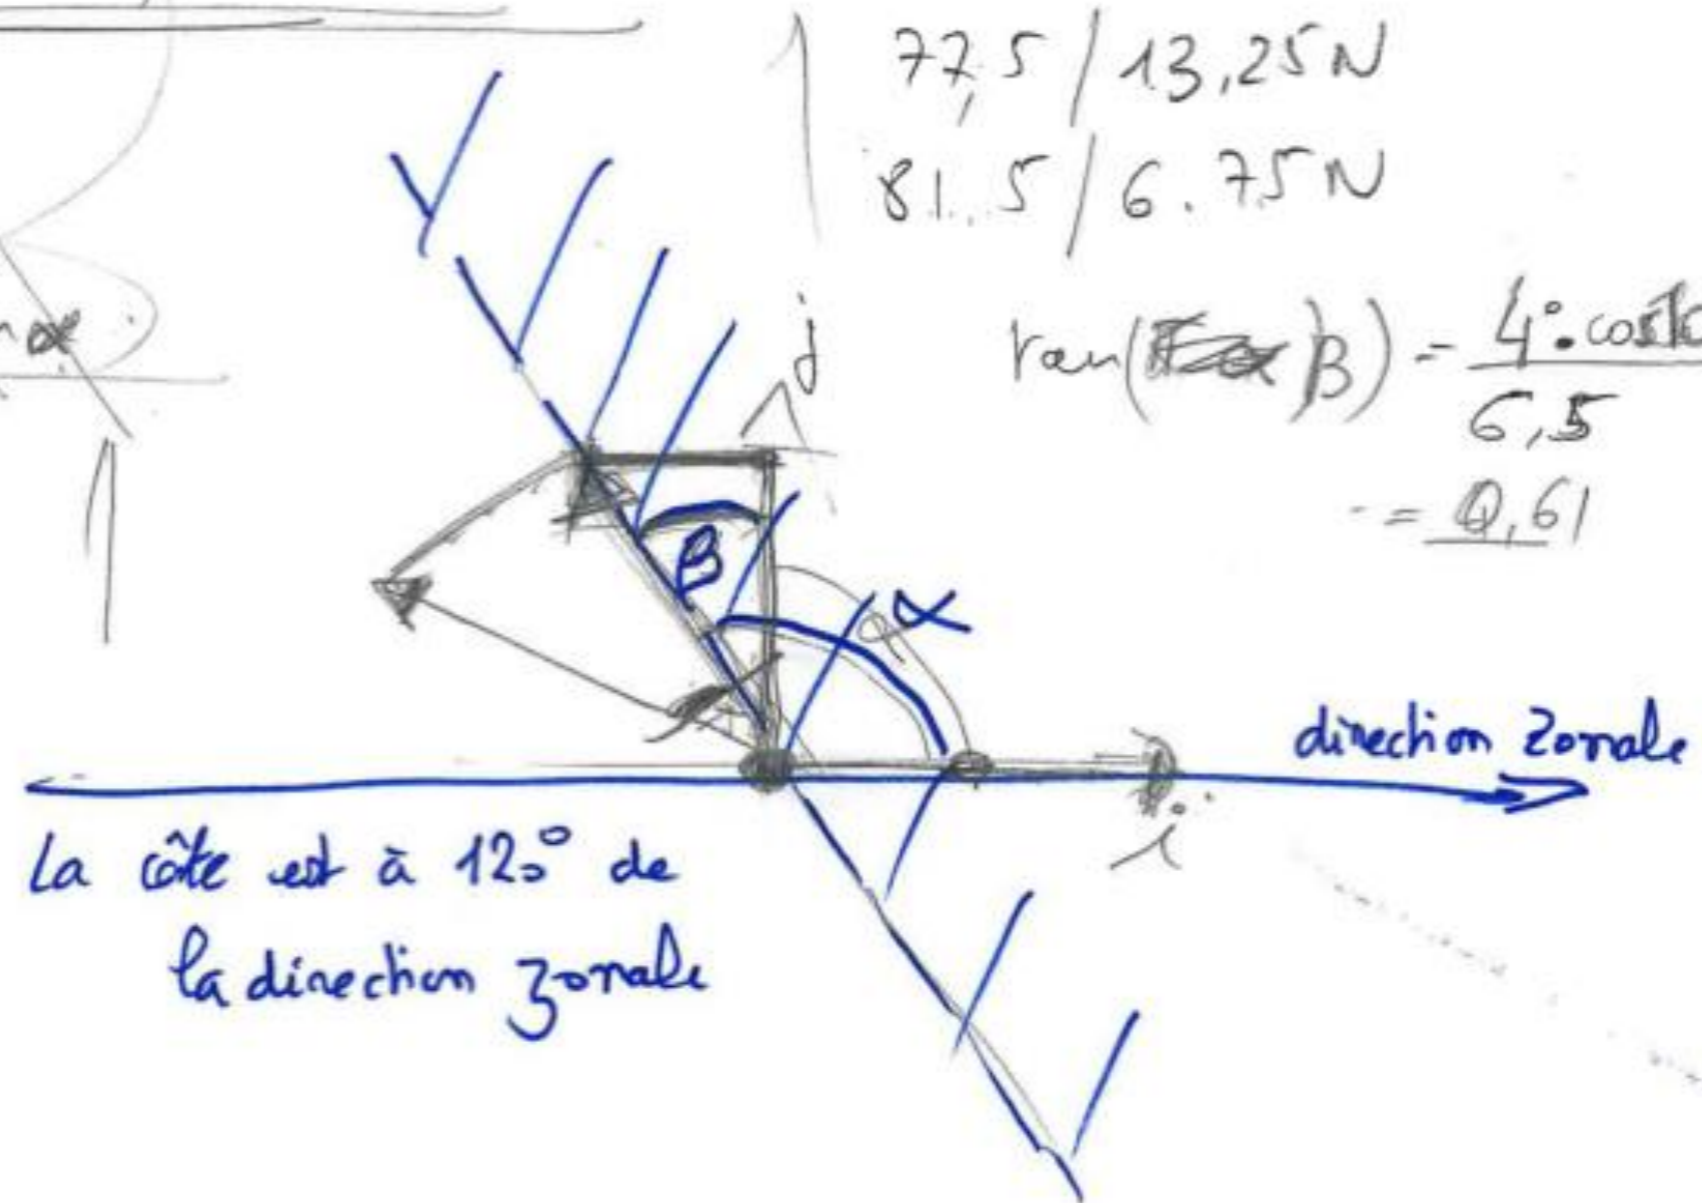 77,5 / 13,25N
81.5 / 6.75N
j
tan( β) = 4°.cos
6,5
= 0,61
β
α
direction zonale
i
La côte est à 120° de
la direction zonale